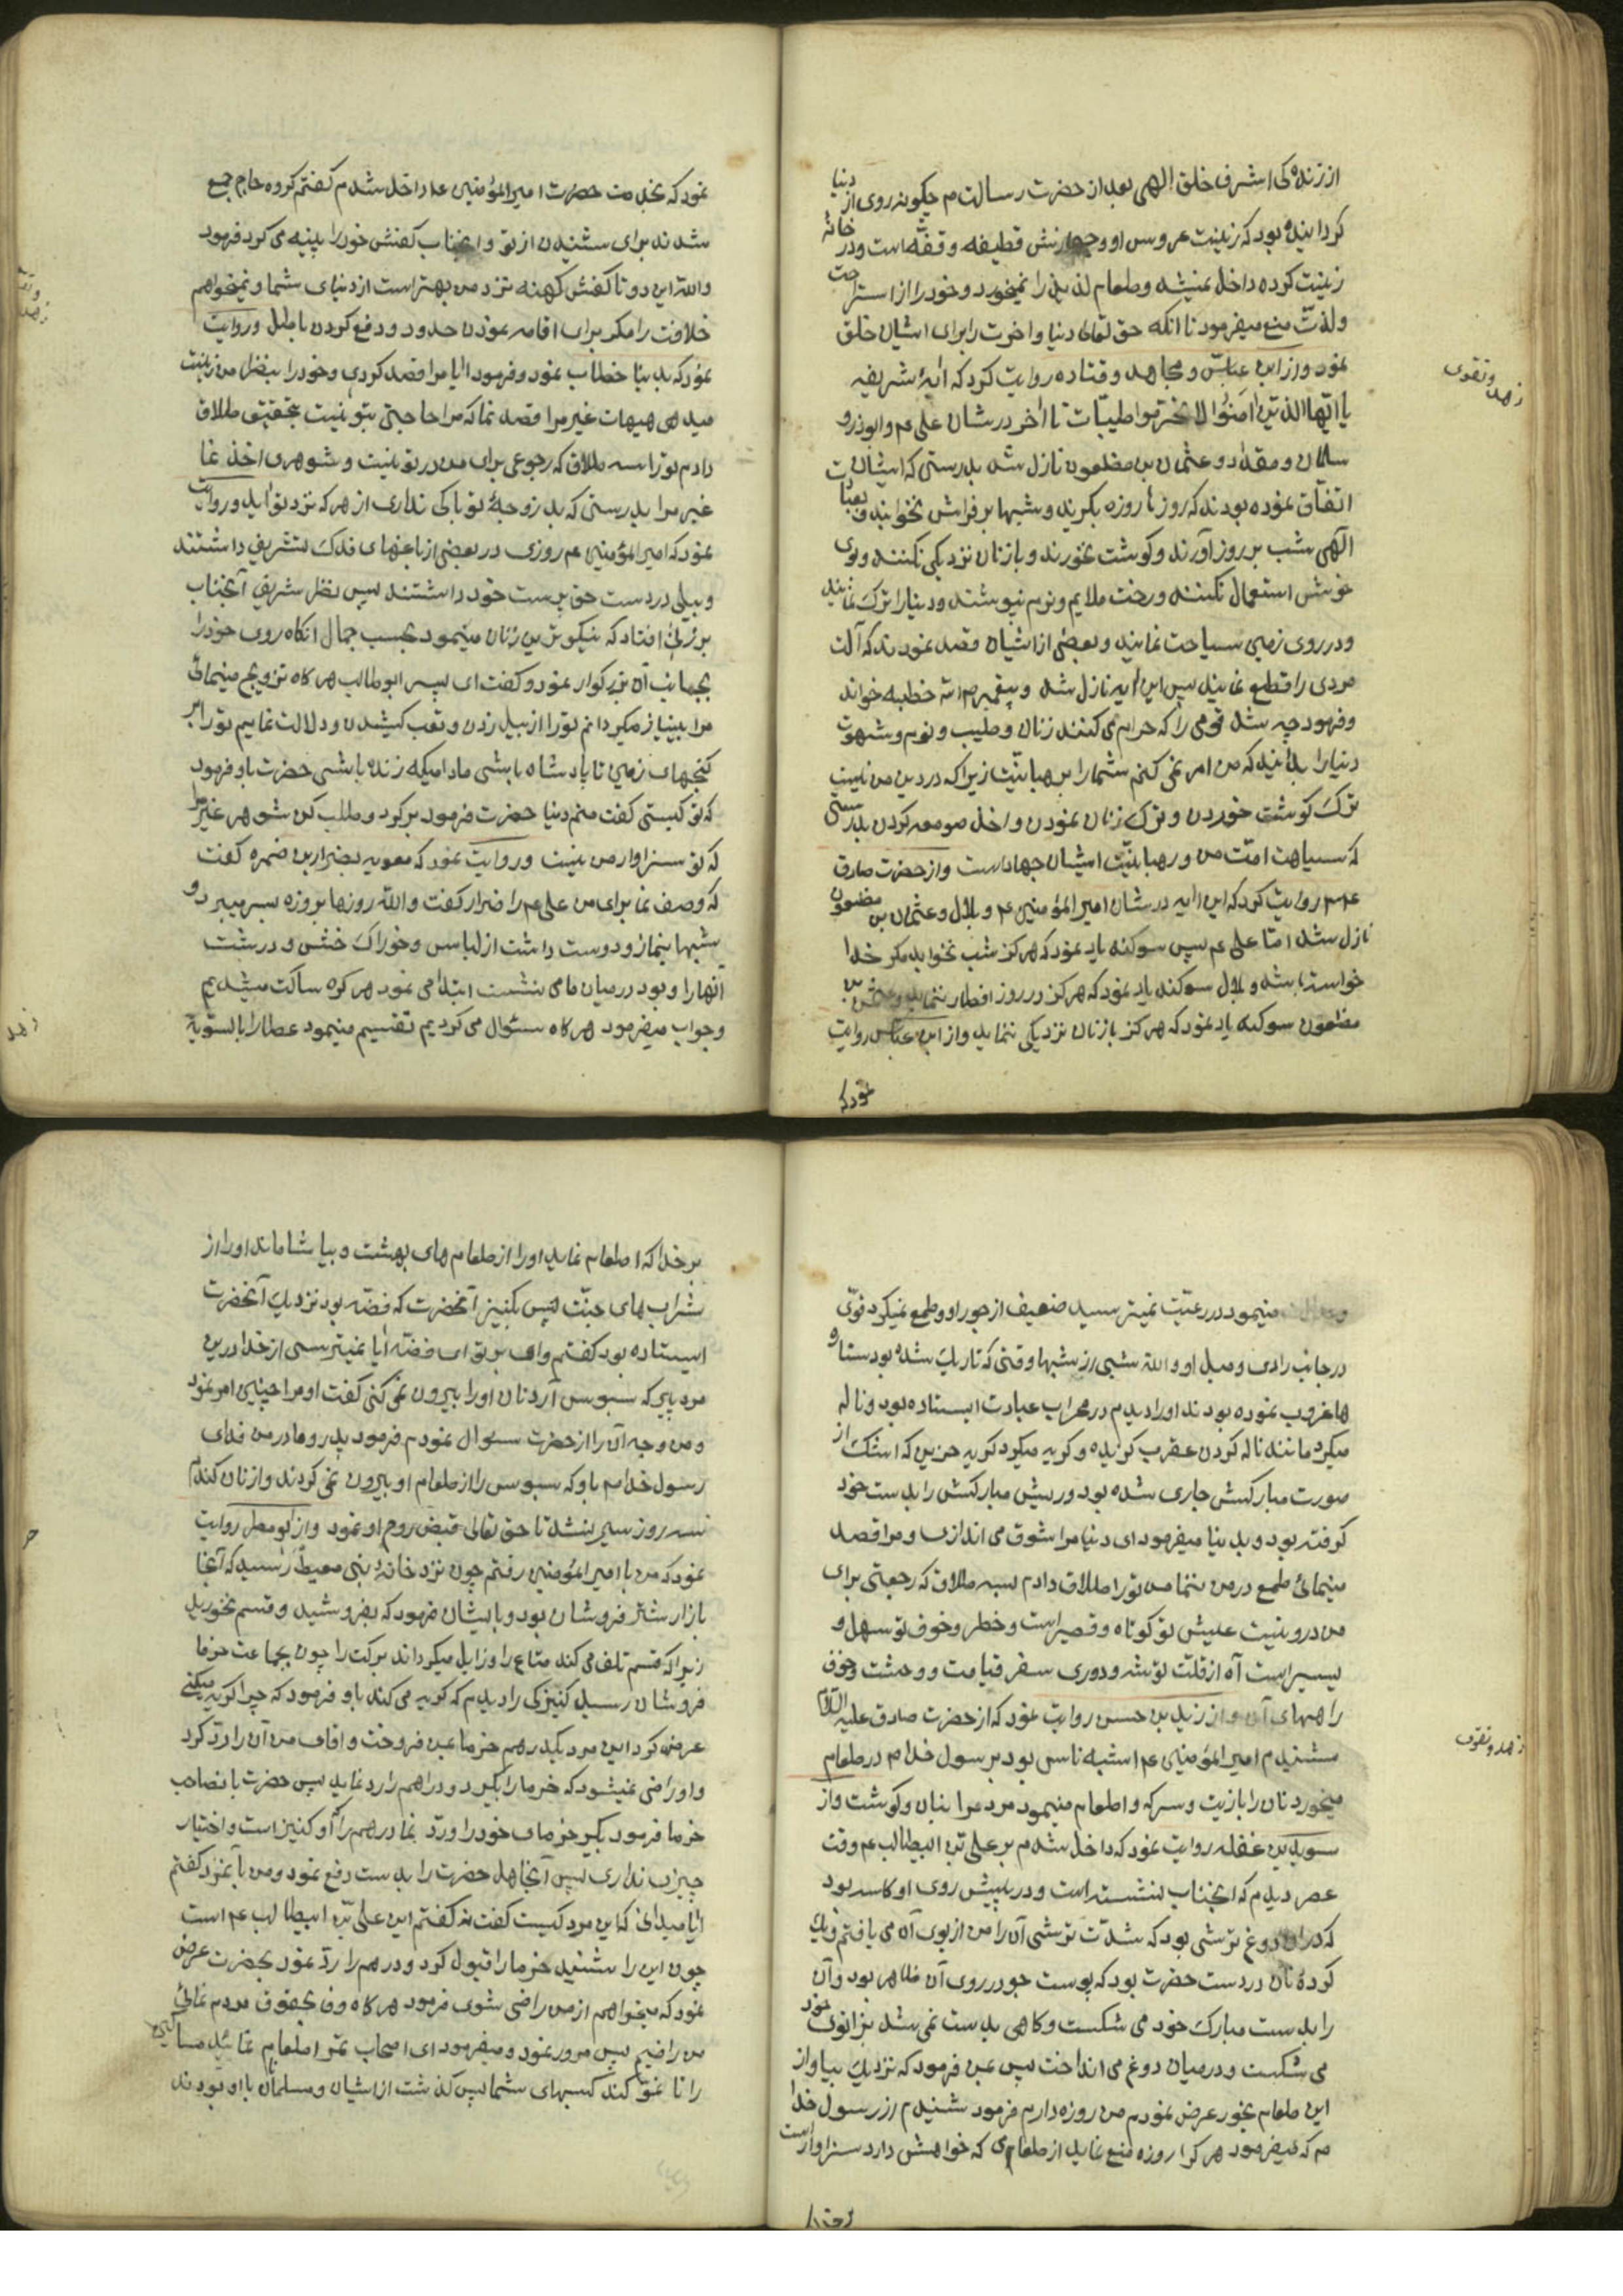 از زنده کی اشرف خلق الهی بعد از حضرت رسالت م چکونه روی از دنیا
کردانیده بود که زینت عروس او و جهازش قطیفه و قفّه است و در خانهٔ
زینت کرده داخل نمیشد و طعام لذیذ را نمیخورد و خود را از استراحت
ولذتّ منع میفرمود تا انکه حق تعالی دنیا و اخرت را برای ایشان خلق
نمود و از ابن عباسّ و مجاهد و قتاده روایت کرد که ایهٔ شریفه
زهد و تقوی
یا ایّها الذین امَنُوا لا تحرّموا طیبّات تا اخر در شان علی ع م و ابوذر و
سلمان و مقداد و عثمان بن مظعون نازل شد بدرستی که ایشان
اتفاّق نموده بودند که روزها روزه بکیرند و شبها بر فراش نخوابند و بعبادت
الهی شب بروز آورند و کوشت نخورند و با زنان نزدیکی نکنند و بوی
خوش استعمال نکنند و رخت ملایم و نرم نپوشند و دنیا را ترک نمایند
و در روی زمین سیاحت نمایند و بعضی از ایشان قصد نمودند که آلت
مردی را قطع نمایند پس این ایه نازل شد و پیغمبر م خطبه خواند
و فرمود چه شد قومی را که حرام می کنند زنان و طیب و نوم و شهوت
دنیا را بدانید که من امر نمی کنم شما را برهبانیّت زیرا که در دین من نیست
ترک کوشت خوردن و ترک زنان نمودن و اخل صومعه کردن بدرستی
که سیاحت امّت من و رهبانیّت ایشان جهاد است و از حضرت صادق
ع م روایت کرد که این ایه در شان امیر المؤمنین ع م و بلال و عثمان بن مظعون
نازل شد امّا علی ع م پس سوکند یاد نمود که هرکز شب نخوابد مکر خدا
خواسته باشد و بلال سوکند یاد نمود که هرکز در روز افطار ننماید و عثمان بن
مظعون سوکند یاد نمود که هرکز با زنان نزدیکی ننماید و از ابن عباّس روایت
نمود که
نمود که بخدمت حضرت امیر المؤمنین ع م داخل شدم کفتم کروه حاج جمع
شدند برای شنیدن از تو و انجناب کفش خود را پینه می کرد فرمود
والله این دو تا کفش کهنه نزد من بهتر است از دنیای شما و نمیخواهم
خلافت را مکر برای اقامه نمودن حدود و دفع کردن باطل و روایت
نمود که بدنیا خطاب نمود و فرمود ایا مرا قصد کردی و خود را بنظر من زینت
میدهی هیهات غیر مرا قصد نما که مرا حاجتی بتو نیست بتحقیق طلاق
دادم تو را سه طلاق که رجوعی برای من در تو نیست و شوهری اخذ نما
غیر مرا بدرستی که بد زوجهٔ تو باکی نداری از هر که نزد تو اید و روایت
نمود که امیر المؤمنین ع م روزی در بعضی از باغهای فدک تشریف داشتند
و بیلی در دست حق پرست خود داشتند پس نظر شریف آنجناب
بر زنی افتاد که نیکوترین زنان مینمود بحسب جمال انکاه روی خود را
بجانب آن بزرکوار نمود و کفت ای پسر ابوطالب هر کاه تزویج مینمائی
مرا بینیاز میکردانم تو را از بیل زدن و تعب کشیدن و دلالت نمایم تو را بر
کنجهای زمین تا پادشاه باشی مادامیکه زنده باشی حضرت باو فرمود
که تو کیستی کفت منم دنیا حضرت فرمود برکرد و طلب کن شوهر غیر مرا
که تو سزاوار من نیست و روایت نمود که معویه بضرار بن ضمره کفت
که وصف نما برای من علی ع م را ضرار کفت والله روزها بروزه بسر میبرد و
شبها بنماز و دوست داشت از لباس و خوراک خشن و درشت
آنها را و بود در میان ما می نشست ابتدا می نمود هر کره ساکت میشدیم
زهد
و جواب میفرمود هر کاه سئوال می کردیم تقسیم مینمود عطا را بالسّویة
مینمود در رعیّت نمیترسید ضعیف از جور او و طمع نمیکرد قوّی
در جانبداری و میل او و الله شبی از شبها وقتی که تاریک شده بود ستاره
ها غروب نموده بودند او را دیدم در محراب عبادت ایستاده بود و ناله
میکرد مانند ناله کردن عقرب کزیده و کریه میکرد کریه حزین که اشک از
صورت مبارکش جاری شده بود و ریش مبارکش را بدست خود
کرفته بود و بدنیا میفرمود ای دنیا مرا شوق می اندازی و مرا قصد
مینمائی طمع در من ننما من تو را طلاق دادم سه طلاق که رجعتی برای
من در و نیست عیش تو کوتاه و قصیر است و خطر و خوف تو سهل و
یسیر است آه از قلّت توشه و دوری سفر قیامت و وحشت و خوف
راههای آن و از زید بن حسن روایت نمود که از حضرت صادق علیه السّلام
شنیدم امیر المؤمنین ع م اشبه ناس بود برسول خدا م در طعام
زهد و تقوی
میخورد نان را با زیت و سرکه و اطعام مینمود مردمرا بنان و کوشت و از
سوید بن غفله روایت نمود که داخل شدم بر علی بن ابیطالب ع م وقت
عصر دیدم که انجناب نشسته است و در پیش روی او کاسه بود
که در ان دوغ ترشی بود که شدّت ترشی آن را من از بوی آن می یافتم و یک
کردهٔ نان در دست حضرت بود که پوست جو در روی آن ظاهر بود و آن
را بدست مبارک خود می شکست و کاهی بدست نمی شد بزانوی خود
می شکست و در میان دوغ می انداخت پس بمن فرمود که نزدیک بیا و از
این طعام بخور عرض نمودم من روزه دارم فرمود شنیدم از رسول خدا
م که میفرمود هر کرا روزه منع نماید از طعامی که خواهش دارد سزاوار است
بر خدا
بر خدا که اطعام نماید او را از طعام های بهشت و بیاشاماند او را از
شراب های جنّت پس بکنیز آنحضرت که فضّه بود نزدیک آنحضرت
ایستاده بود کفتم وای بر تو ای فضّه ایا نمیترسی از خدا در این
مرد پیر که سبوس آرد نان او را بیرون نمی کنی کفت او مرا چنین امر نمود
و من وجه آن را از حضرت سئوال نمودم فرمود پدر و مادر من فدای
رسول خدا م باد که سبوس را از طعام او بیرون نمی کردند و از نان کندم
سه روز سیر نشد تا حق تعالی قبض روح او نمود و از ابو مطر روایت
نمود که من با امیر المؤمنین رفتم چون نزد خانهٔ بنی معیط رسید که آنجا
بازار شتر فروشان بود و بایشان فرمود که بفروشید و قسم نخورید
زیرا که قسم تلف می کند متاع را و زایل میکرداند برکت را چون بجماعت خرما
فروشان رسید کنیزکی را دیدم که کریه می کند باو فرمود که چرا کریه میکنی
عرض کرد این مرد بکدرهم خرما بمن فروخت و اقای من آن را ردّ کرد
و او راضی نمیشود که خرما را بکیرد و دراهم را رد نماید پس حضرت با نصاحب
خرما فرمود بکیر خرمای خود را و ردّ نما درهم را که او کنیز است و اختیار
چیزی نداری پس آنجاهل حضرت را بدست دفع نمود و من با نمرد کفتم
ایا میدانی که این مرد کیست کفت نه کفتم این علی بن ابیطالب ع م است
چون این را شنید خرما را قبول کرد و درهم را ردّ نمود بحضرت عرض
نمود که میخواهم از من راضی شوی فرمود هر کاه وفا بحقوق مردم نمائی
من راضیم پس مرور نمود و میفرمود ای اصحاب تمر اطعام نمائید مساکین
را تا نموّ کند کسبهای شما پس کذشت از ایشان و مسلمانان با او بودند